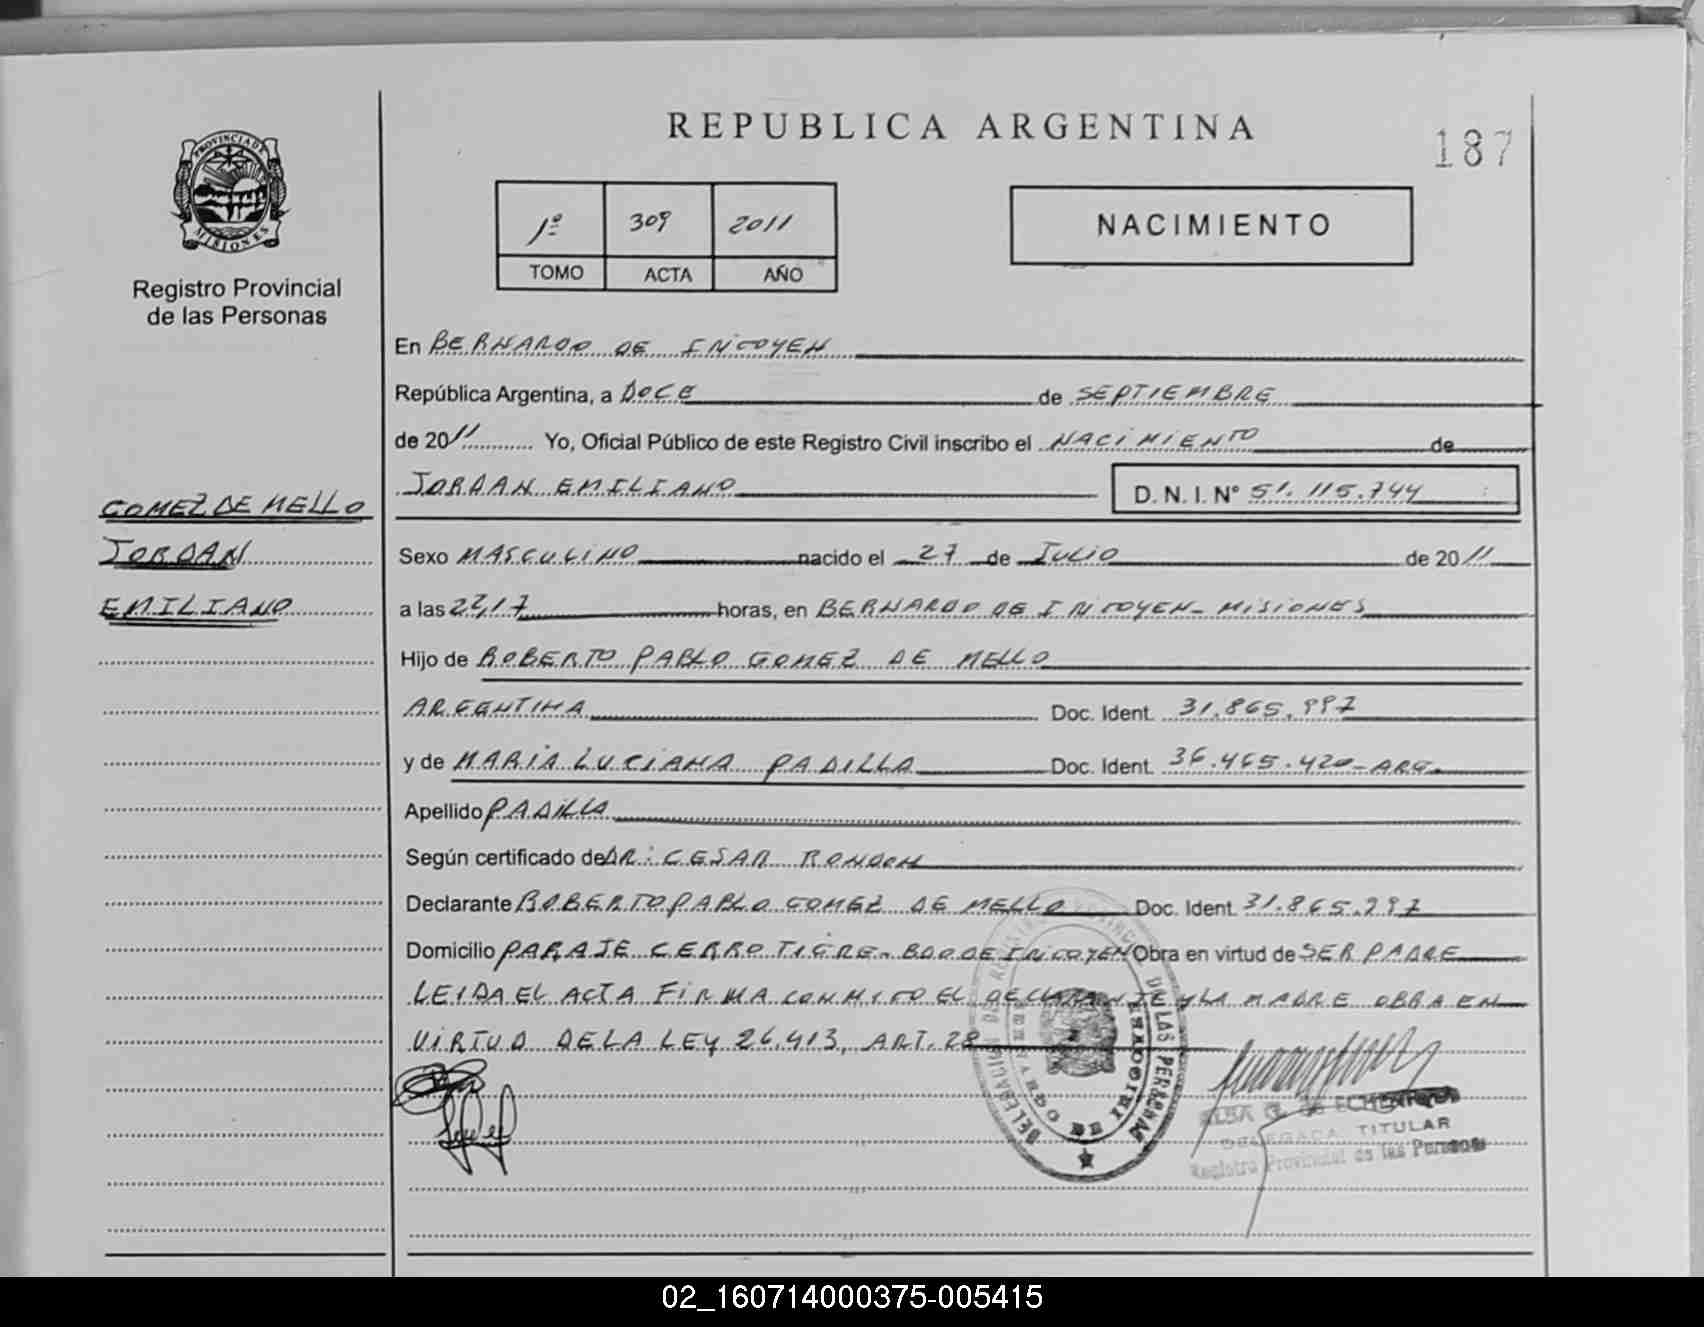 REPUBLICA ARGENTINA
187
PROVINCIA DE
MISIONES
Registro Provincial
de las Personas
1º 309 2011
TOMO ACTA AÑO
NACIMIENTO
En BERNARDO DE IRIGOYEN
República Argentina, a DOCE de SEPTIEMBRE
de 2011 Yo, Oficial Público de este Registro Civil inscribo el NACIMIENTO de
JORDAN EMILIANO D. N. I. Nº 51.115.744
GOMEZ DE MELLO
JORDAN
EMILIANO
Sexo MASCULINO nacido el 27 de JULIO de 2011
a las horas, en BERNARDO DE IRIGOYEN - MISIONES
Hijo de ROBERTO PABLO GOMEZ DE MELLO
ARGENTINA Doc. Ident.
y de MARIA LUCIANA PADILLA Doc. Ident. 36.465.420 - ARG.
Apellido PADILLA
Según certificado de DR: CESAR RONDON
Declarante ROBERTO PABLO GOMEZ DE MELLO Doc. Ident.
Domicilio PARAJE CERRO TIGRE - BDO DE IRIGOYEN Obra en virtud de SER PADRE
LEIDA EL ACTA FIRMA CONMIGO EL DECLARANTE Y LA MADRE OBRA EN
VIRTUD DE LA LEY 26.413, ART. 28
DELEGACION DE LAS PERSONAS
BERNARDO DE IRIGOYEN
ALBA DE
DELEGADA TITULAR
Registro Provincial de las Personas
02_160714000375-005415